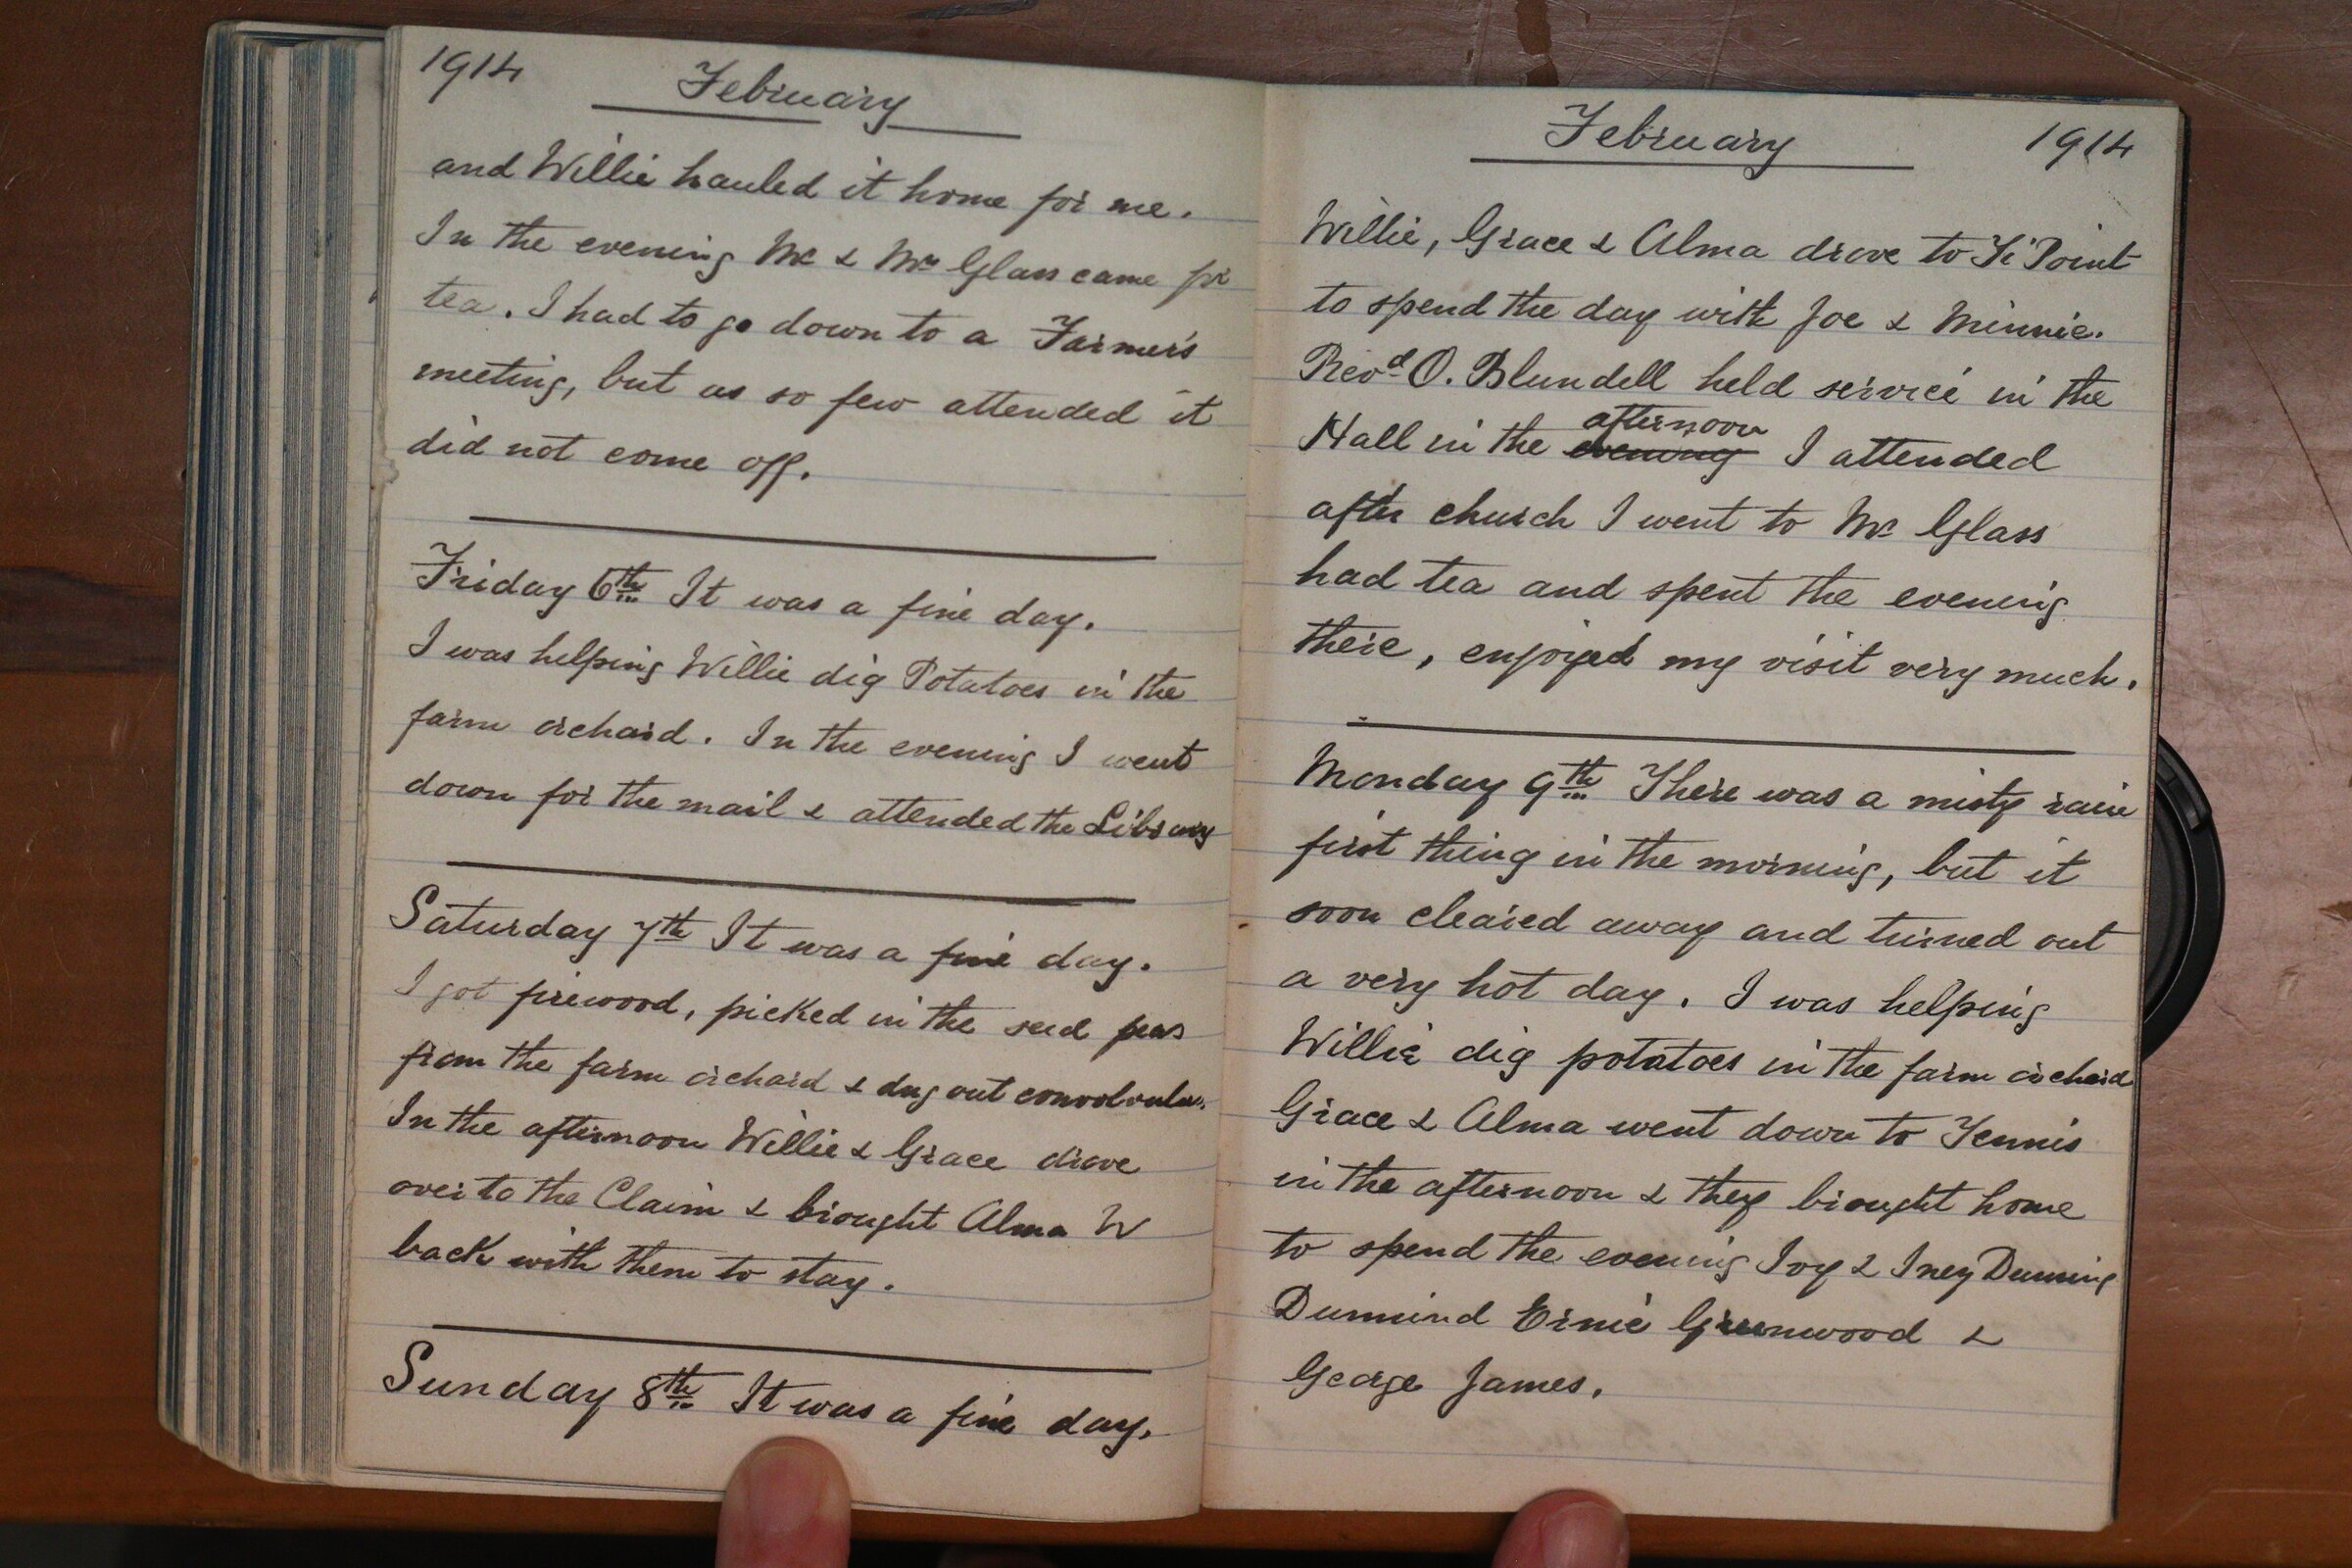 1914
February
and Willie hauled it home for me.
In the evening Mr & Mrs Glass came for
tea. I had to go down to a Farmer's
meeting, but as so few attended it
did not come off.
Friday 6th It was a fine day.
I was helping Willie dig Potatoes in the
farm orchard. In the evening I went
down for the mail & attended the Library
Saturday 7th It was a fine day.
I got firewood, picked in the seed peas
from the farm orchard & dug out convolvulus.
In the afternoon Willie & Grace drove
over to the Claim & brought Alma W
back with them to stay.
Sunday 8th It was a fine day.
February 1914
Willie, Grace & Alma drove to Ti Point
to spend the day with Joe & Minnie.
Revd O. Blundell held service in the
afternoon
Hall in the evening I attended
after church I went to Mr Glass
had tea and spent the evening
there, enjoyed my visit very much.
Monday 9th There was a misty rain
first thing in the morning, but it
soon cleared away and turned out
a very hot day. I was helping
Willie dig potatoes in the farm orchard
Grace & Alma went down to Tennis
in the afternoon & they brought home
to spend the evening Ivy & Inez Dunning
Ernie Greenwood &
George James.